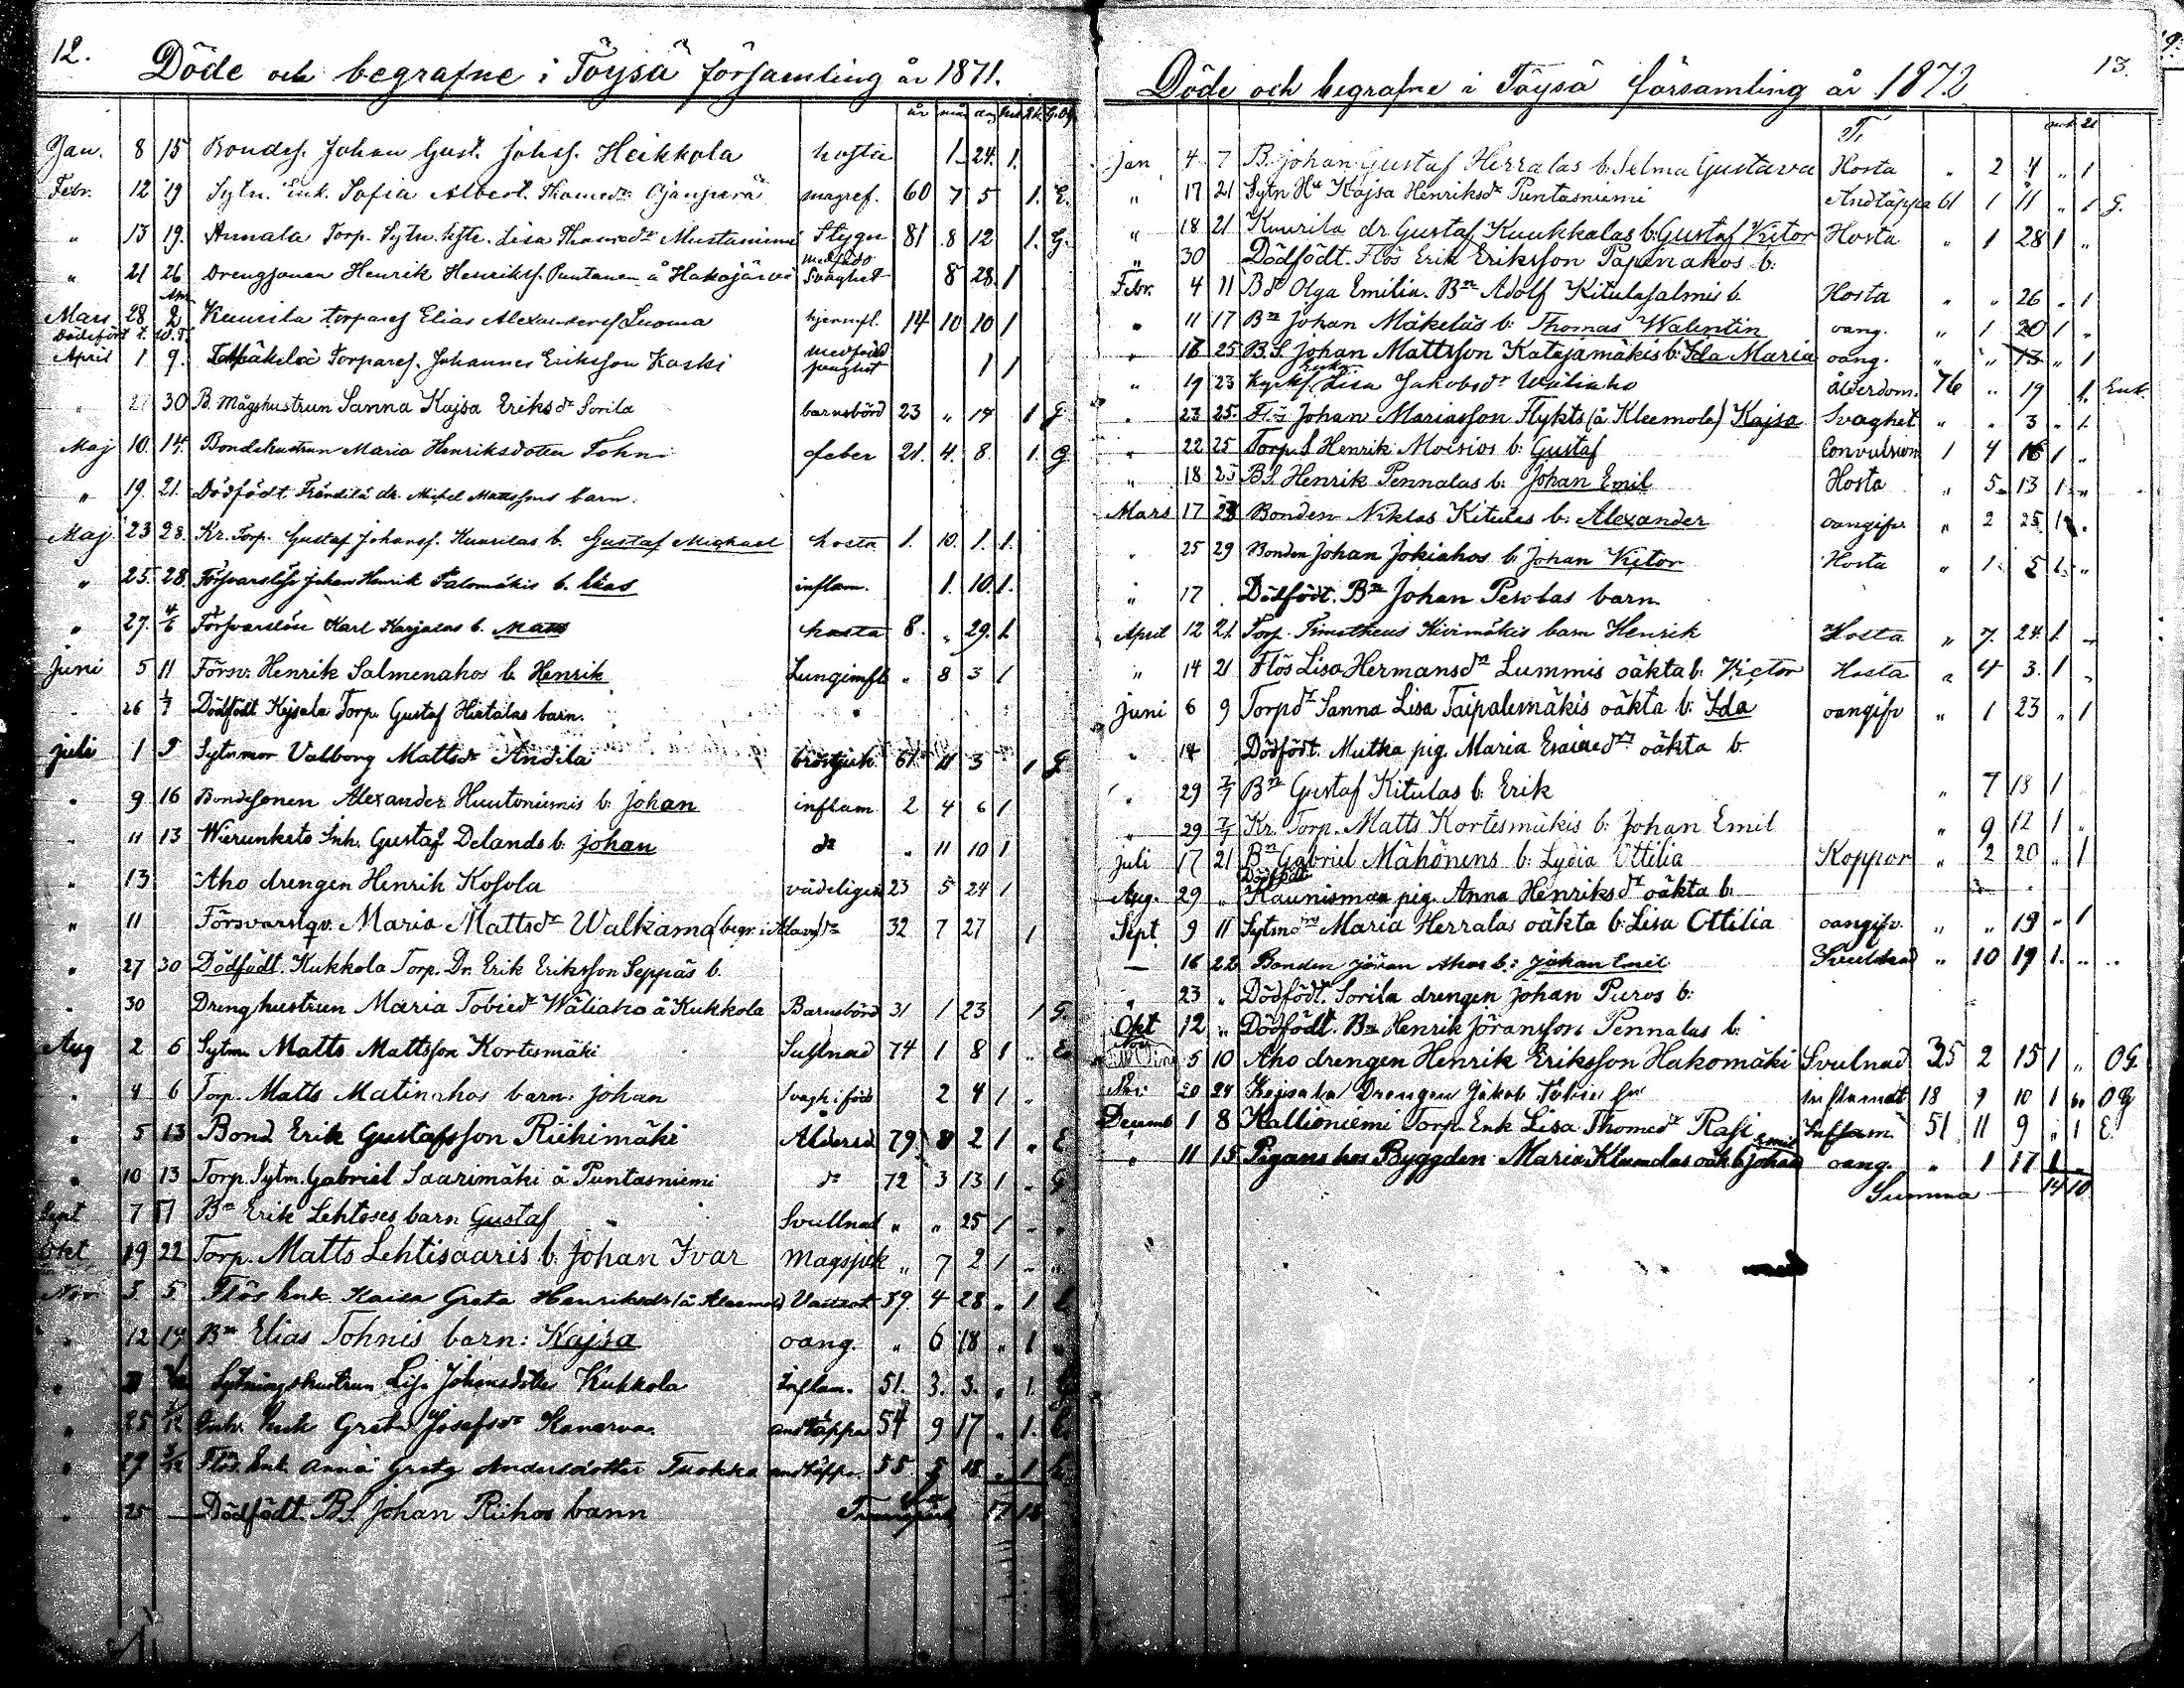 12.
Döde och begrafne i Töysä församling år 1871.
år mån dag
Jan. 8 15 Bondes. Johan Gust. Johss. Heikkola hosta 1 24. 1.
Febr. 12 19 Sytn. Enk. Sofia Albert. Thomedr Ojanperä magref. 60 7 5 1. E.
" 13 19. Annala Torp. Sytn. hstr. Lisa Thomedr Mustaniemi Stygn 81 8 12 1. G.
" 21 26 Drengsonen Henrik Henrikss. Puntanen å Hakojärvi medfödd Svaghet 8 28. 1
Mars 28 Apr. 2 Kuurila torpares Elias Alexanderss Luoma hjernfl. 14 10 10 1
April 1 9. Torpares. Johannes Eriksson Koski medfödd svaghet 1 1
" 27 30 B. Mågshustrun Sanna Kajsa Eriksdr Sorila barnsbörd 23 " 14 1 G
Maj 10. 14. Bondehustrun Maria Henriksdotter Tohni feber 21. 4. 8. 1. G.
" 19. 21. Dödfödt dr. Michel Mattssons barn.
Maj 23 28. Kr. Torp. Gustaf Johanss. Kuurilas b. Gustaf Michael hosta 1. 10. 1. 1.
" 25. 28. Försvarslöse Johan Henrik Palomäkis b. Elias inflam. 1. 10. 1.
" 27. 4/6 Försvarslöse Karl Karjalas b. Matts hosta 8. " 29. 1.
Juni 5 11 Försv. Henrik Salmenahos b. Henrik Lunginfl. " 8 3 1
" 26 1/7 Dödfödt Keisala Torp. Gustaf Hietalas barn.
Juli 1 9 Sytnmor Valborg Mattsdr Andila bröstsjuk 61 11 3 1 G
" 9 16 Bondesonen Alexander Huutoniemis b: Johan inflam 2 4 6 1
" 11 13 Wierunketo Inh. Gustaf Delands b: Johan do " 11 10 1
" 13 Aho drengen Henrik Kosola vådeligen 23 5 24 1
" 11 Försvarslqv. Maria Mattsdr Walkama (begr. i Alavo) do 32 7 27 1
" 27 30 Dödfödt. Kukkola Torp. Dr. Erik Eriksson Seppäs b.
" 30 Drenghustrun Maria Tobiedr Wäliaho å Kukkola Barnsbörd 31 1 23 1 G.
Aug 2 6 Sytm. Matts Mattsson Kortesmäki 74 1 8 1 " E.
" 4 6 Torp. Matts Matinahos barn: Johan Svagh. i föds 2 4 1 "
" 5 13 Bond. Erik Gustafsson Riihimäki Åldersd 79 8 2 1 " E
" 10 13 Torp. Sytm. Gabriel Saarimäki å Puntasniemi do 72 3 13 1 " G.
Sept 7 17 Bn Erik Lehtoses barn Gustaf Svullnad " " 25 1 " "
Okt 19 22 Torp. Matts Lehtisaaris b: Johan Ivar Magsjuk " 7 2 1 " "
Nov. 3. 5. Flös Enk. Kaisa Greta Henriksdr (å Kleemola) Vattsot 39. 4 28 " 1
" 12 19 Bn Elias Tohnis barn: Kajsa oang. " 6 18 " 1 "
" Sytningshustrun Lisa Johansdotter Kukkola Inflam. 51. 3. 3. " 1.
" 25 3/12 Inh. Enk Greta Josefsdr Kanerva andtäppa 54 9 17 " 1. E.
" 29 3/12 Flös. Enk. Anna Greta Andersdotter Tuokko andtäppa. 55. 5 18. " 1 E.
" 25 — Dödfödt. B.S. Johan Riihos barn Transport 17 16
13.
Döde och begrafne i Töysä församling år 1872
Jan 4 7 B. Johan Gustaf Herralas b. Selma Gustava Hosta " 2 4 " 1
" 17 21 Sytn Hu Kajsa Henriksdr Puntasniemi Andtäppa 61 1 11 " 1 G.
" 18 21 Kuurila dr. Gustaf Kuukkalas b: Gustaf Victor Hosta " 1 28 1 "
" 30 Dödfödt. Flös Erik Eriksson Papinahos b:
Febr. 4 11 Bdr Olga Emilia. Bn Adolf Kitulasalmis b. Hosta " " 26 " 1
" 11 17 Bn Johan Mäkeläs b: Thomas Walentin oang. " 1 20 1 "
" 16 25 B.S. Johan Mattsson Katajamäkis b: Ida Maria oang. " " 13 " 1
" 19 23 Kyrkf. Enkn Lisa Jakobsdr Wäliaho ålderdom. 76 " 19 1. Enk.
" 23 25. Flös Johan Mariasson Flykts (å Kleemola) Kajsa Svaghet " " 3 " 1.
" 22 25 Torp. S Henrik Moisios b: Gustaf Convulsion 1 4 16 1 "
" 18 25 BS. Henrik Pennalas b: Johan Emil Hosta " 5 13 1 "
Mars 17 23 Bonden Niklas Kitulas b: Alexander oangifv. " 2 25 1 "
" 25 29 Bonden Johan Jokiahos b: Johan Victor Hosta " 1 5 1 "
" 17 . Dödfödt. Bn Johan Perolas barn.
April 12 21. Torp. Timotheus Kivimäkis barn Henrik Hosta " 7. 24. 1. "
" 14 21 Flös Lisa Hermansdr Lummis oäkta b: Victor Hosta " 4 3. 1 "
Juni 6 9 Torpdr Sanna Lisa Taipalemäkis oäkta b: Ida oangifv " 1 23 " 1
" 14 Dödfödt. Mutka pig. Maria Esaiaedrs oäkta b.
" 29 7/7 Bn Gustaf Kitulas b: Erik " 7 13 1
" 29 7/7 Kr. Torp. Matts Kortesmäkis b: Johan Emil " 9 12 1 "
Juli 17 21 Bn Gabriel Mähönens b: Lydia Ottilia Koppor " 2 20 " 1
Aug. 29 " Dödfödt Kaunismaa pig. Anna Henriksdr oäkta b.
Sept. 9 11 Sytmdrs Maria Herralas oäkta b: Lisa Ottilia oangifv. " " 19 " 1
— 16 22 Bonden Jöran Ahos b: Johan Emil Svullnad " 10 19 1. " "
" 23 " Dödfödt. Sorila drengen Johan Puros b:
Okt 12 " Dödfödt. Bn Henrik Jöranssons Pennalas b:
Nov 5 10 Aho drengen Henrik Eriksson Hakomäki Svulnad 35 2 15 1 " OG.
Nov 20 24 Keisala Drengen Jakob inflamat 18 9 10 1 " OG
Decemb 1 8 Kallioniemi Torp. Enk Lisa Thomedr Rasi Inflam. 51 11 9 " 1 E.
" 11 15 Pigans hos Byggden Maria Klemolas oäk. b. Johan Emil oang. " 1 17 1 "
Summa — 14 10